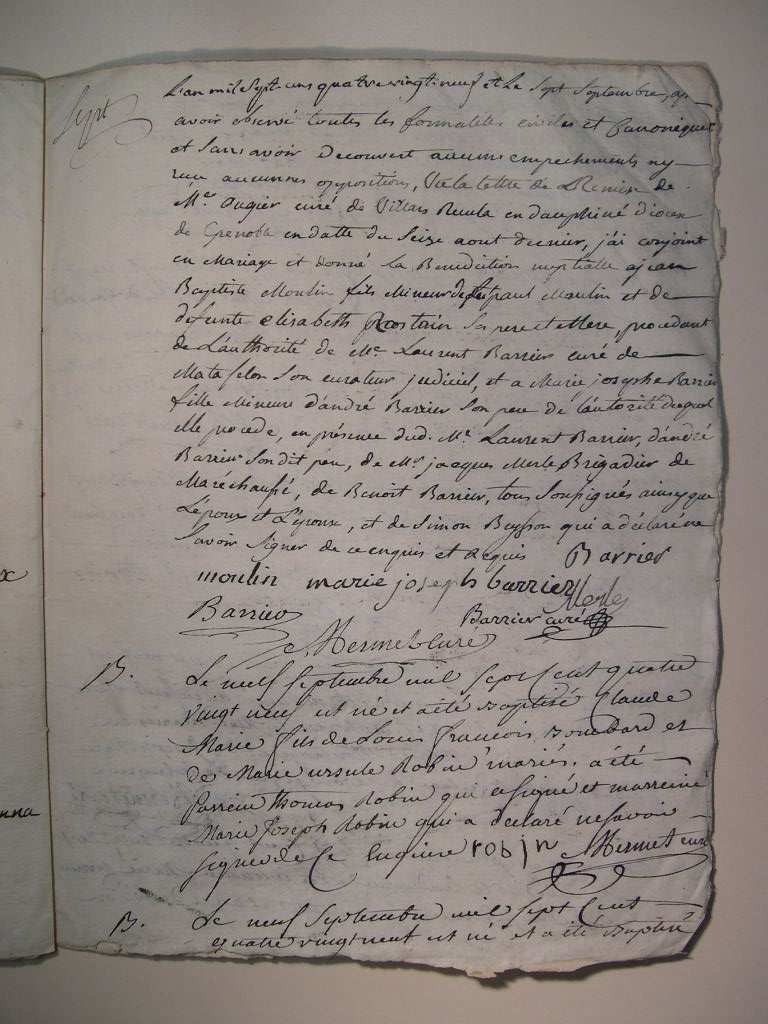 Sept
L'an mil Sept cens quatre vingt neuf et Le Sept Septembre, ap-
avoir observé toutes les formalités civiles et Canoniques
et Sans avoir Decouvert aucuns empechements ny
reçu aucunnes oppositions, Vu la lettre de Remise de
Mre. Augier curé de Villars en dauphiné diocese
de Grenoble en datte du Seize aout dernier, j'ai conjoint
en Mariage et donné La Benediction nuptialle a jean
Baptiste Moulin fils Mineur de feu paul Moulin et de
defunte elisabeth Rostain Ses pere et Mere, procedant
de L'authorité de Mre. Laurent Barrier curé de
Son curateur judiciel, et a Marie josephe Barrier
fille Mineure d'andré Barrier Son pere de l'autorité duquel
elle procede, en présence dud. Mre. Laurent Barrier, d'andré
Barrier Sondit pere, de Mr. jacques Merle Brigadier de
Maréchaussé, de Benoit Barrier, tous Soussignés ainsy que
L'epoux et L'epouse, et de Simon Buysson qui a déclaré ne
Savoir Signer de ce enquis et requis Barrier
moulin marie joseph barrier Merle
Barrier Barrier curé
Mermet curé
B. Le neuf Septembre mil Sept Cent quatre
vingt neuf est né et a été Baptisé Claude
Marie fils de Louis françois et
de Marie ursule Robin mariés. a été
Parrein thomas Robin qui a Signé et marreine
Marie Joseph Robin qui a déclaré ne Savoir
Signer de Ce Enquise robin Mermet curé
B. Le neuf Septembre mil Sept Cent
quatre vingt neuf est né et a été Baptisé
x
nna